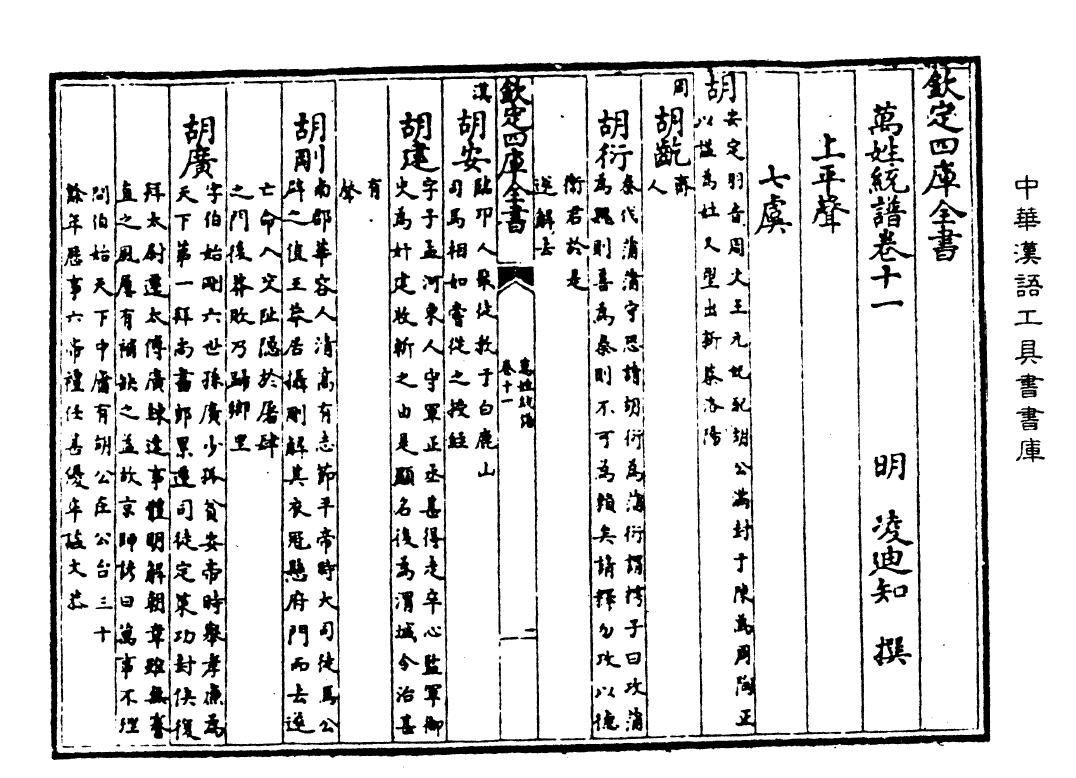 中華漢語工具書書庫
欽定四庫全書
萬姓統譜卷十一
明 凌迪知 撰
上平聲
七虞
胡
安定羽音周文王元妃配胡公滿封于陳為周陶正
以諡為姓又望出新蔡洛陽
周
胡齕
齊
人
胡衍
秦伐蒲蒲守恐請胡衍為蒲衍謂樗子曰攻蒲
為魏則善為秦則不可為賴矣請釋勿攻以德
衛君於是
遂解去
欽定四庫全書
萬姓統譜
卷十一
二
漢
胡安
臨邛人聚徒教于白鹿山
司馬相如嘗從之授經
胡建
字子孟河東人守軍正丞甚得走卒心監軍御
史為奸建收斬之由是顯名後為渭城令治甚
有
聲
胡剛
南郡華容人清高有志節平帝時大司徒馬公
辟之值王莽居攝剛解其衣冠懸府門而去遂
亡命入交趾隱於屠肆
之門後莽敗乃歸鄉里
胡廣
字伯始剛六世孫廣少孤貧安帝時舉孝廉為
天下第一拜尚書郎累遷司徒定策功封侯復
拜太尉遷太傅廣練達事體明解朝章雖無謇
直之風屢有補缺之益故京師諺曰萬事不理
問伯始天下中庸有胡公在公台三十
餘年歷事六帝禮任甚優卒諡文恭